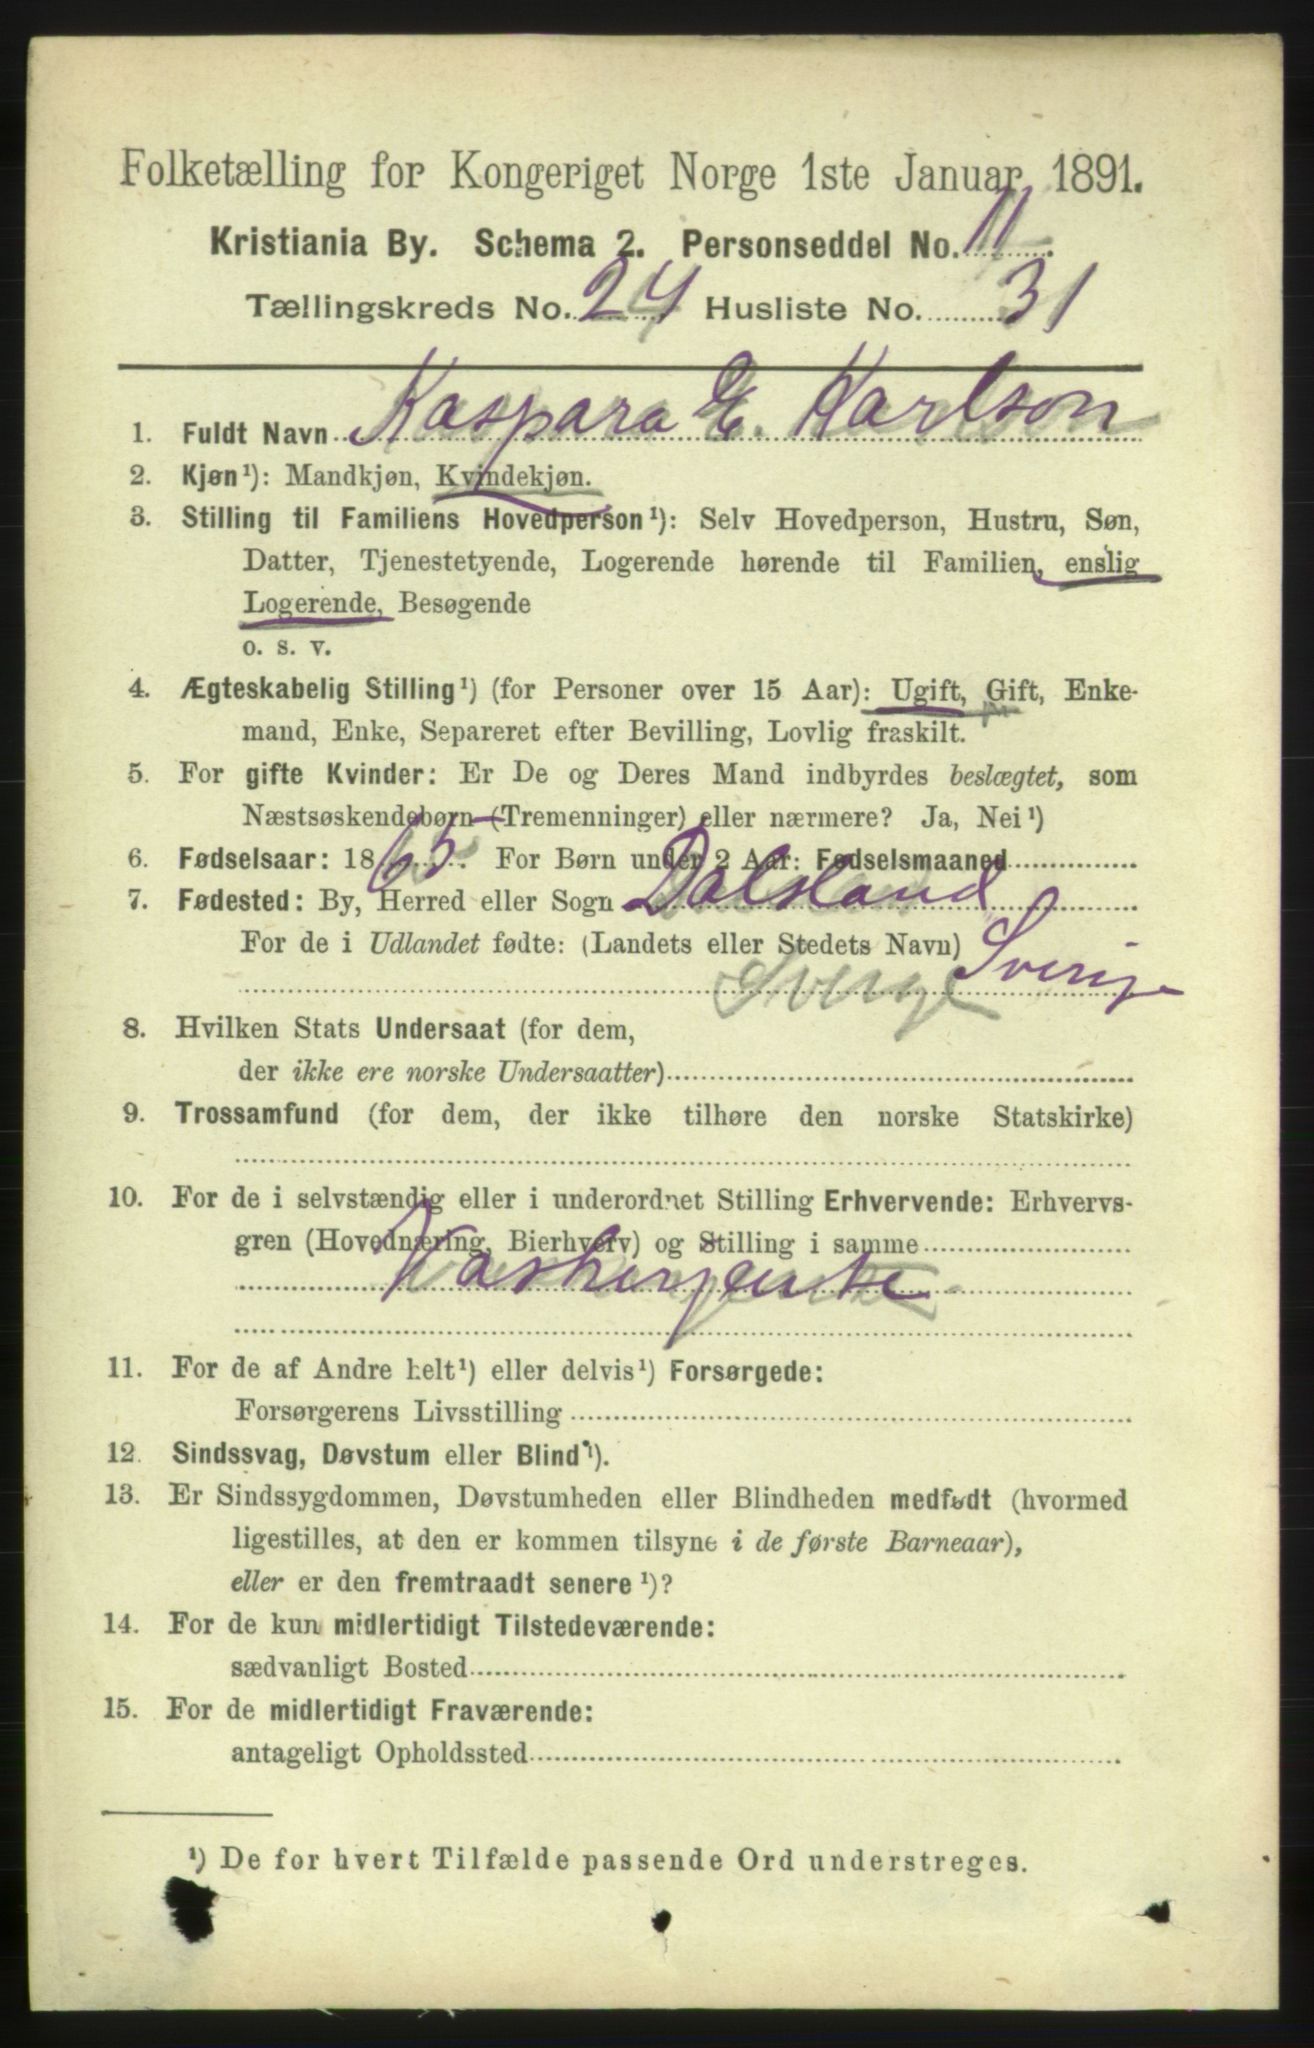 Folketælling for Kongeriget Norge 1ste Januar 1891.
Kristiania By. Schema 2. Personseddel No. 11
Tællingskreds No. 24 Husliste No. 31
1. Fuldt Navn Kaspara E. Karlson
2. Kjøn¹): Mandkjøn, Kvindekjøn.
3. Stilling til Familiens Hovedperson¹): Selv Hovedperson, Hustru, Søn,
Datter, Tjenestetyende, Logerende hørende til Familien, enslig
Logerende, Besøgende
o. s. v.
4. Ægteskabelig Stilling¹) (for Personer over 15 Aar): Ugift, Gift, Enke-
mand, Enke, Separeret efter Bevilling, Lovlig fraskilt.
5. For gifte Kvinder: Er De og Deres Mand indbyrdes beslægtet, som
Næstsøskendebørn (Tremenninger) eller nærmere? Ja, Nei¹)
6. Fødselsaar: 1865. For Børn under 2 Aar: Fødselsmaaned
7. Fødested: By, Herred eller Sogn Dalsland
For de i Udlandet fødte: (Landets eller Stedets Navn) Sverige
Sverge
8. Hvilken Stats Undersaat (for dem,
der ikke ere norske Undersaatter)
9. Trossamfund (for dem, der ikke tilhøre den norske Statskirke)
10. For de i selvstændig eller i underordnet Stilling Erhvervende: Erhvervs-
gren (Hovednæring, Bierhverv) og Stilling i samme
Vaskerjente
11. For de af Andre helt¹) eller delvis¹) Forsørgede:
Forsørgerens Livsstilling
12. Sindssvag, Døvstum eller Blind¹).
13. Er Sindssygdommen, Døvstumheden eller Blindheden medfødt (hvormed
ligestilles, at den er kommen tilsyne i de første Barneaar),
eller er den fremtraadt senere¹)?
14. For de kun midlertidigt Tilstedeværende:
sædvanligt Bosted
15. For de midlertidigt Fraværende:
antageligt Opholdssted
¹) De for hvert Tilfælde passende Ord understreges.